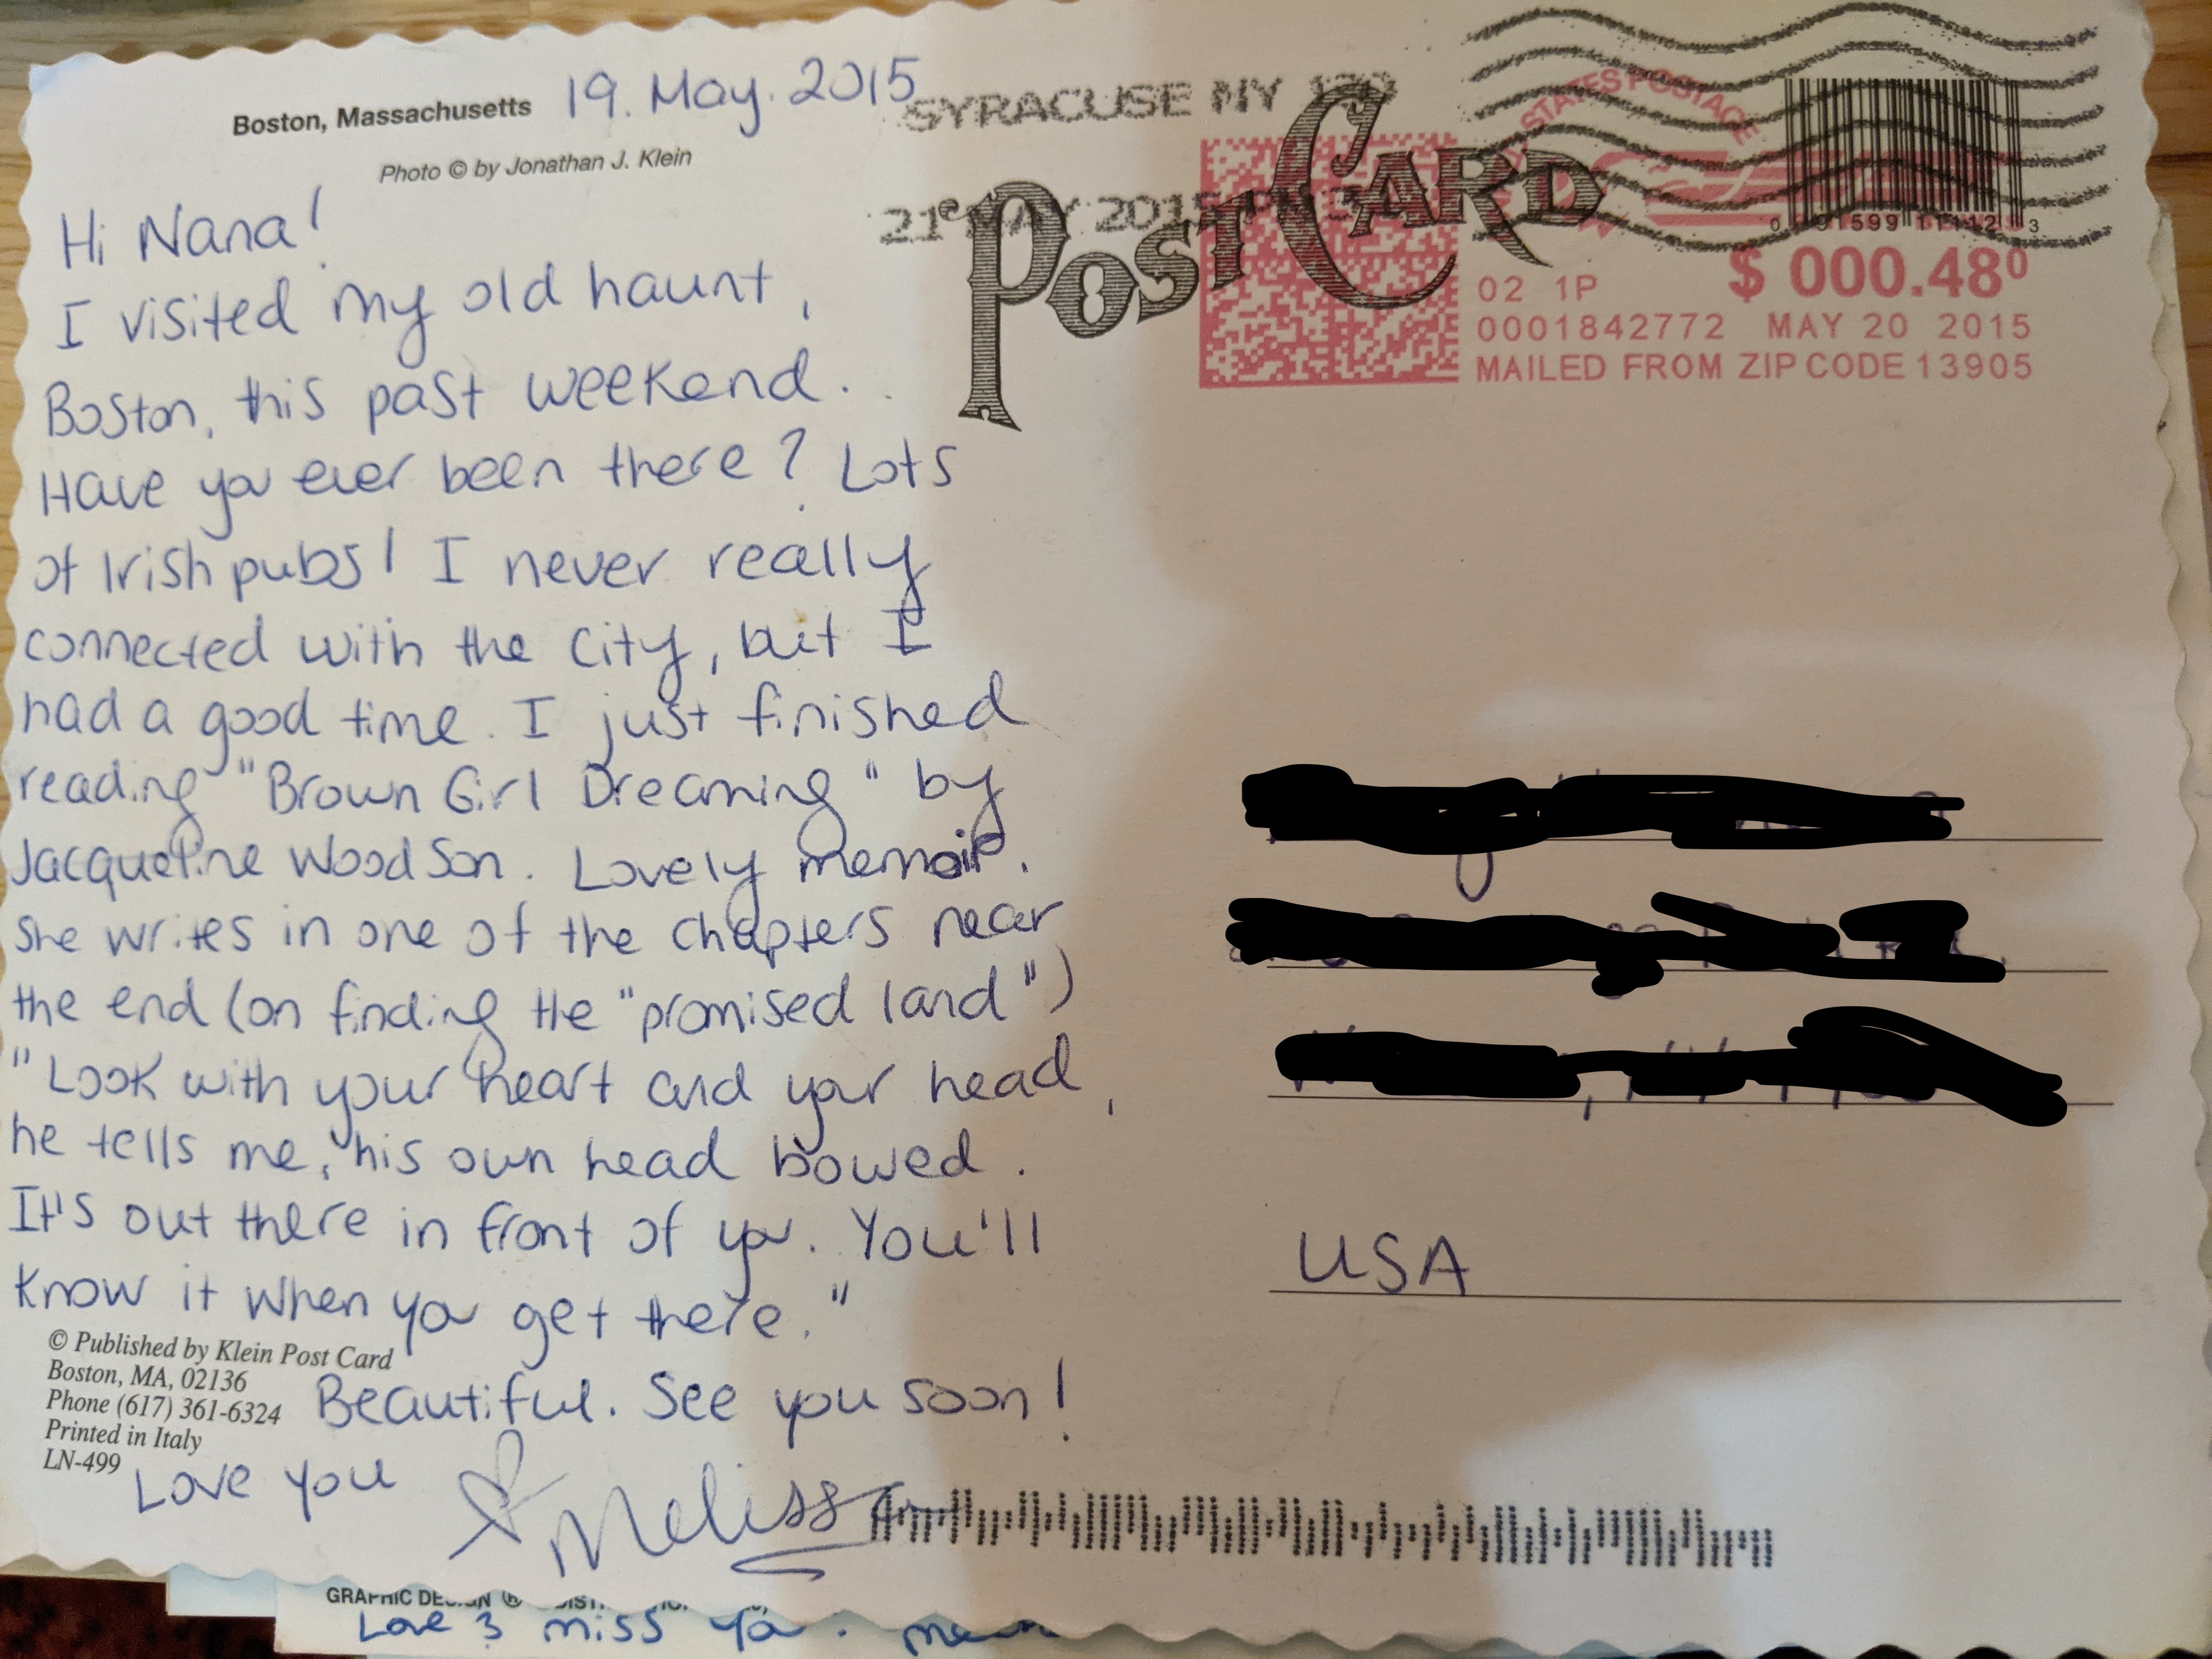 Boston, Massachusetts 19. May. 2015
Photo © by Jonathan J. Klein
Hi Nana!
I visited my old haunt,
Boston, this past weekend.
Have you ever been there? Lots
of Irish pubs! I never really
connected with the city, but I
had a good time. I just finished
reading "Brown Girl Dreaming" by
Jacqueline Woodson. Lovely memoir.
She writes in one of the chapters near
the end (on finding the "promised land")
"Look with your heart and your head,
he tells me, his own head bowed.
It's out there in front of you. You'll
know it when you get there."
Beautiful. See you soon!
Love you
Melissa
© Published by Klein Post Card
Boston, MA, 02136
Phone (617) 361-6324
Printed in Italy
LN-499
SYRACUSE NY
21 MAY 2015
POST CARD
STATES POSTAGE
$ 000.48⁰
02 1P
0001842772 MAY 20 2015
MAILED FROM ZIP CODE 13905
USA
GRAPHIC
Love & miss you.